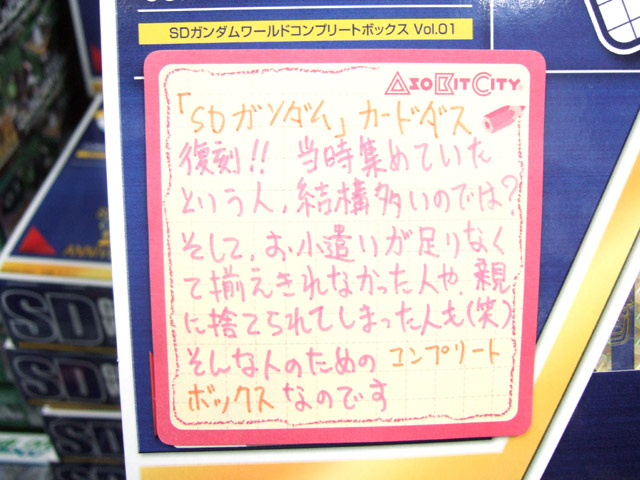 SDガンダムワールドコンプリートボックス Vol.01
ASOBITCITY
「SDガンダム」カードダス
復刻!! 当時集めていた
という人、結構多いのでは?
そして、お小遣いが足りなく
て揃えきれなかった人や、親
に捨てられてしまった人も(笑)
そんな人のための コンプリート
ボックスなのです
SD
SD
SD